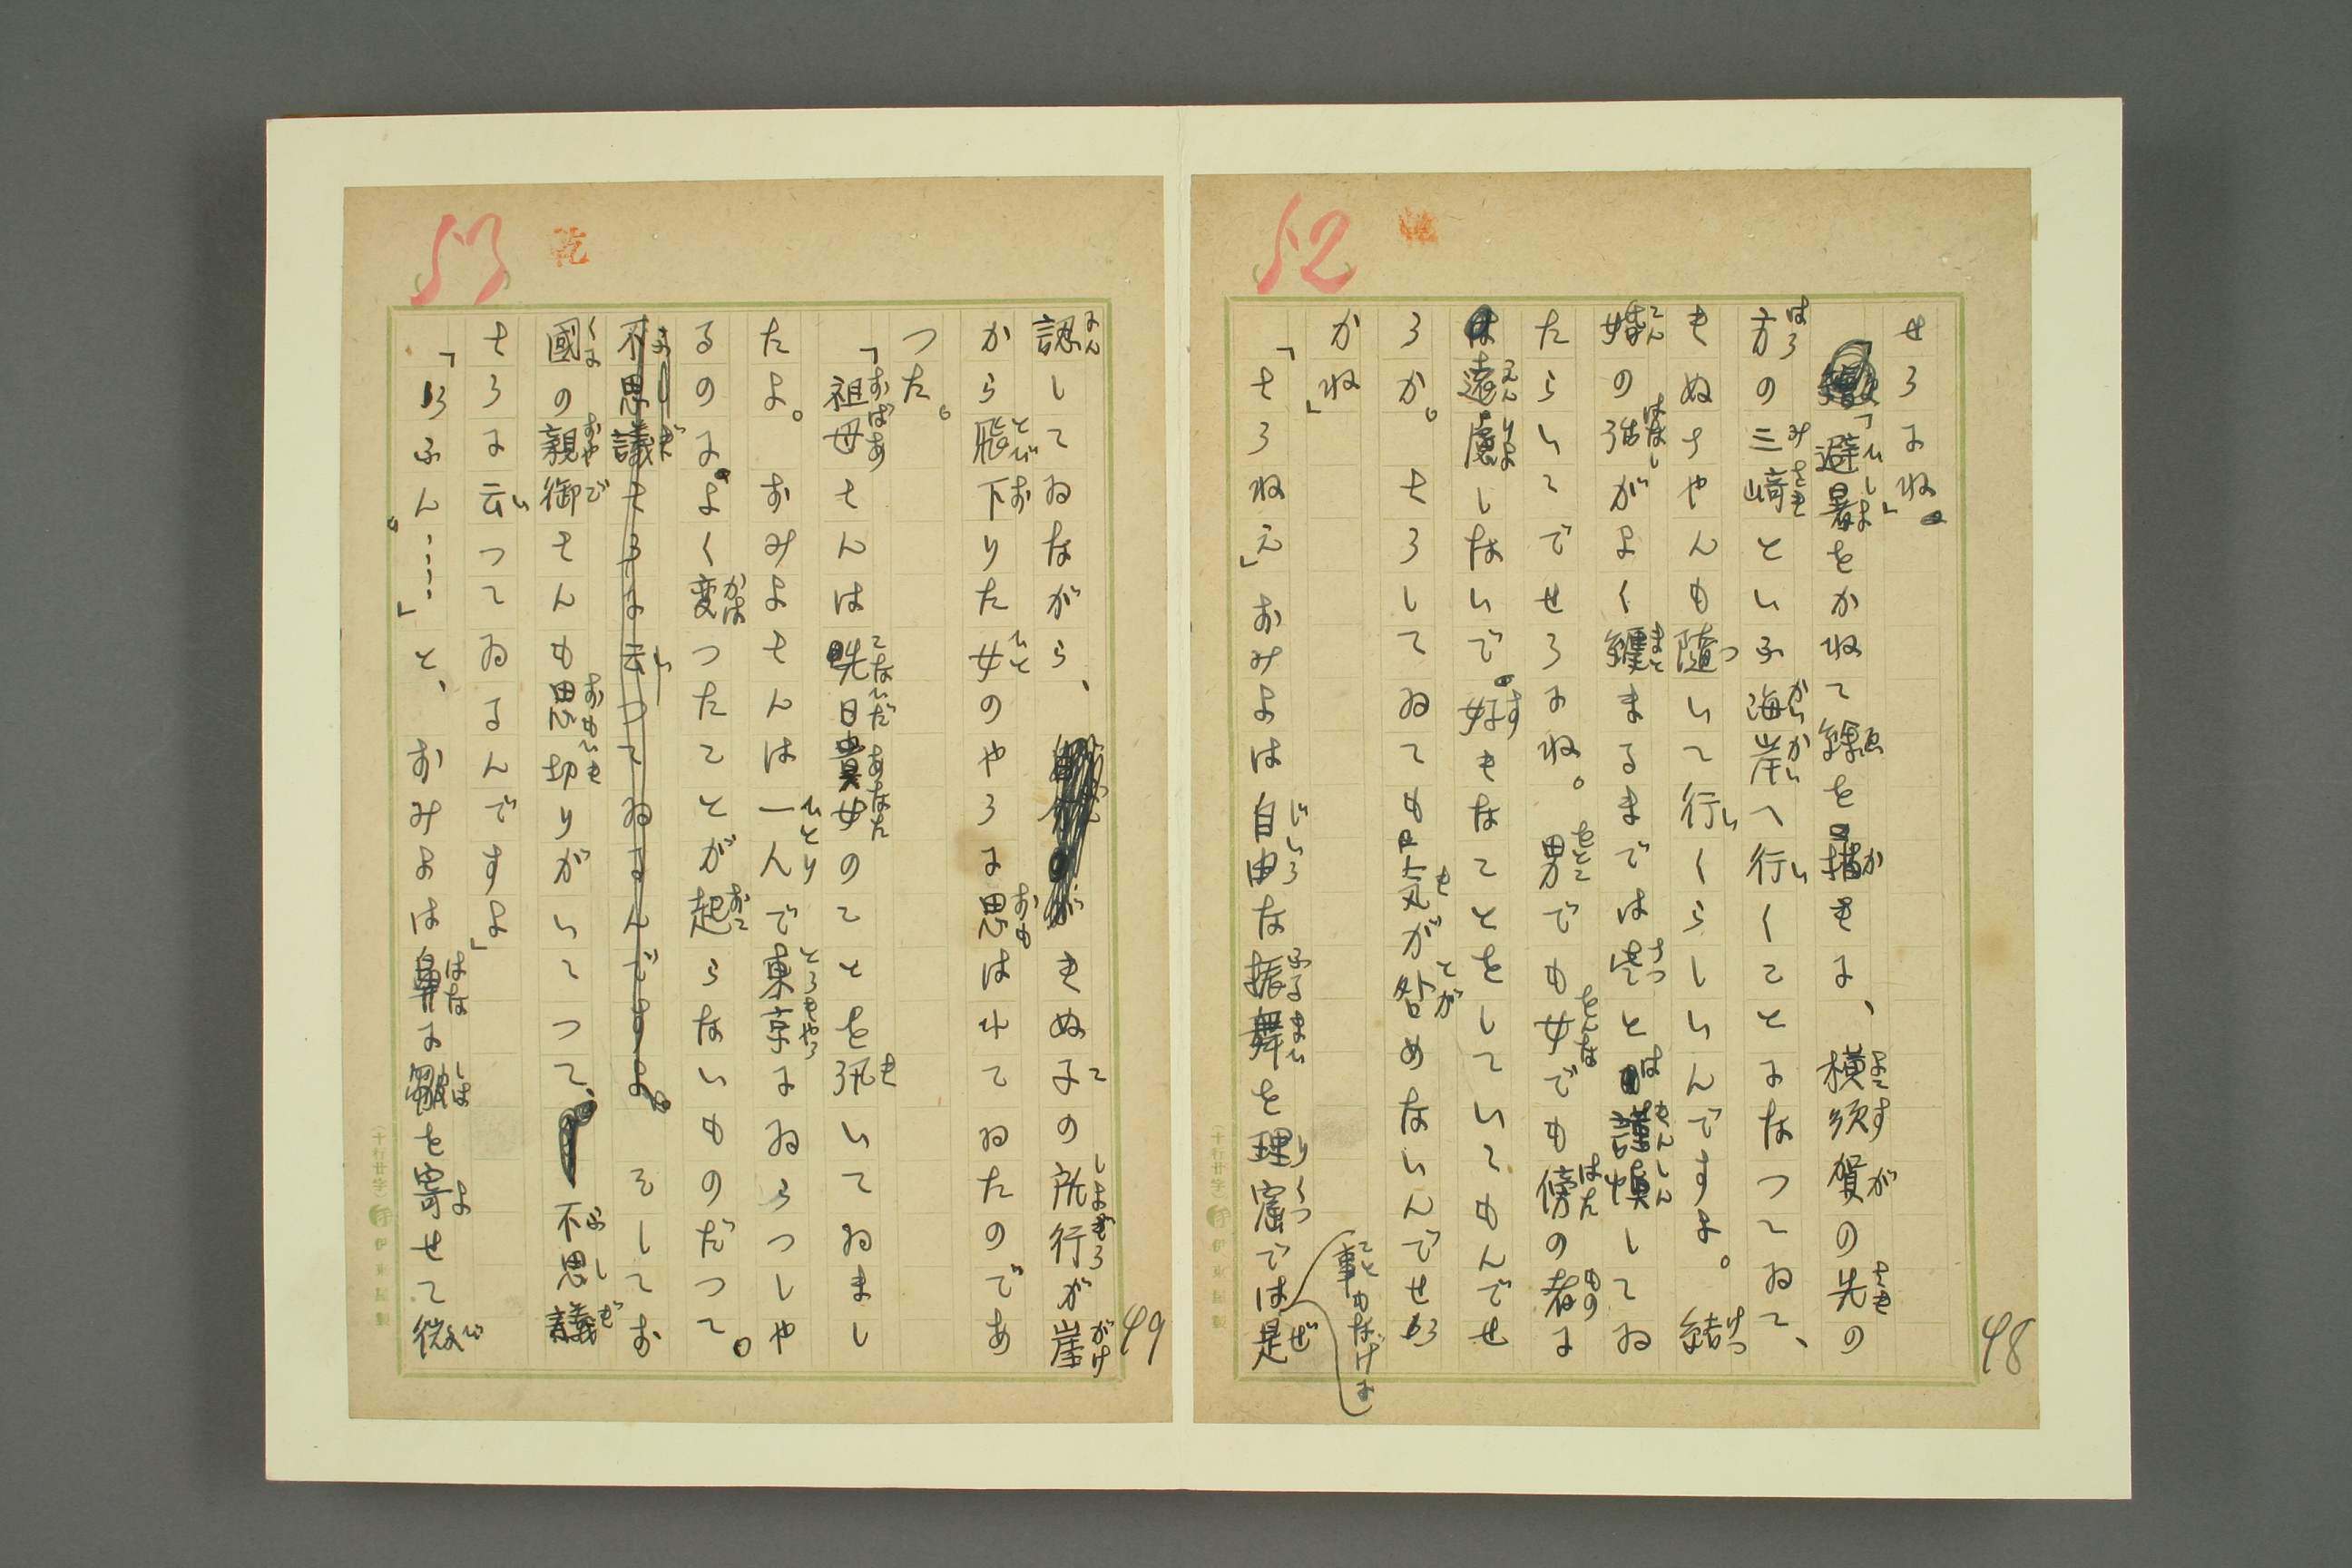 52
48
せうにね」
「避暑をかねて繪を描きに、横須賀の先の
方の三崎といふ海岸へ行くことになつてゐて、
きぬちやんも隨いて行くらしいんですよ。結
婚の話がよく纏まるまでは些と謹愼してゐ
たらいゝでせうにね。男でも女でも傍の者に
は遠慮しないで、好きなことをしていゝもんでせ
うか。さうしてゐても気が咎めないんでせう
かね」
「さうねえ」おみよは自由な振舞を理窟では是
事もなげに
53
乾
49
認してゐながら、きぬ子の所行が崖
から飛下りた女のやうに思はれてゐたのであ
つた。
「祖母さんは晄日貴女のことを訊いてゐまし
たよ。おみよさんは一人で東京にゐらつしや
るのに、よく変つたことが起らないものだつて。
不思議さうに云つてゐるんですよ。そしてお
國の親御さんも思切りがいゝつて、不思議
さうに云つてゐるんですよ」
「うふん……。」と、おみよは鼻に皺を寄せて微
(十行廿字) 伊東屋製